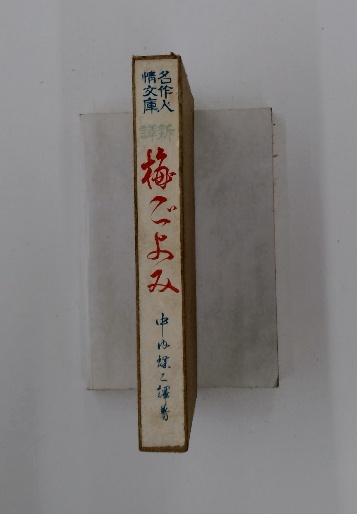 名作人
情文庫
新譯
梅ごよみ
中内蝶二譯著